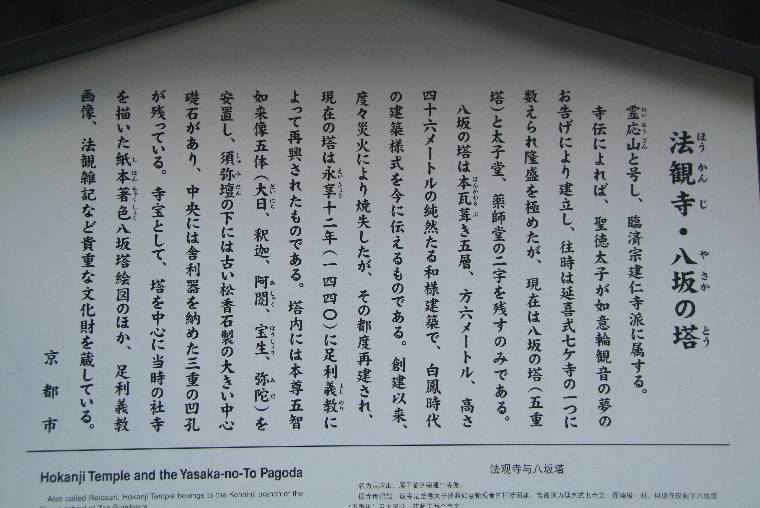 法観寺・八坂の塔
霊応山と号し、臨済宗建仁寺派に属する。
寺伝によれば、聖徳太子が如意輪観音の夢の
お告げにより建立し、往時は延喜式七ケ寺の一つに
数えられ隆盛を極めたが、現在は八坂の塔（五重
塔）と太子堂、薬師堂の二宇を残すのみである。
八坂の塔は本瓦葺き五層、方六メートル、高さ
四十六メートルの純然たる和様建築で、白鳳時代
の建築様式を今に伝えるものである。創建以来、
度々災火により焼失したが、その都度再建され、
現在の塔は永享十二年（一四四〇）に足利義教に
よって再興されたものである。塔内には本尊五智
如来像五体（大日、釈迦、阿閦、宝生、弥陀）を
安置し、須弥壇の下には古い松香石製の大きい中心
礎石があり、中央には舎利器を納めた三重の凹孔
が残っている。寺宝として、塔を中心に当時の社寺
を描いた紙本著色八坂塔絵図のほか、足利義教
画像、法観雑記など貴重な文化財を蔵している。
京都市
Hokanji Temple and the Yasaka-no-To Pagoda
Also called Reiozan, Hokanji Temple belongs to the Kenninji branch of the
法观寺与八坂塔